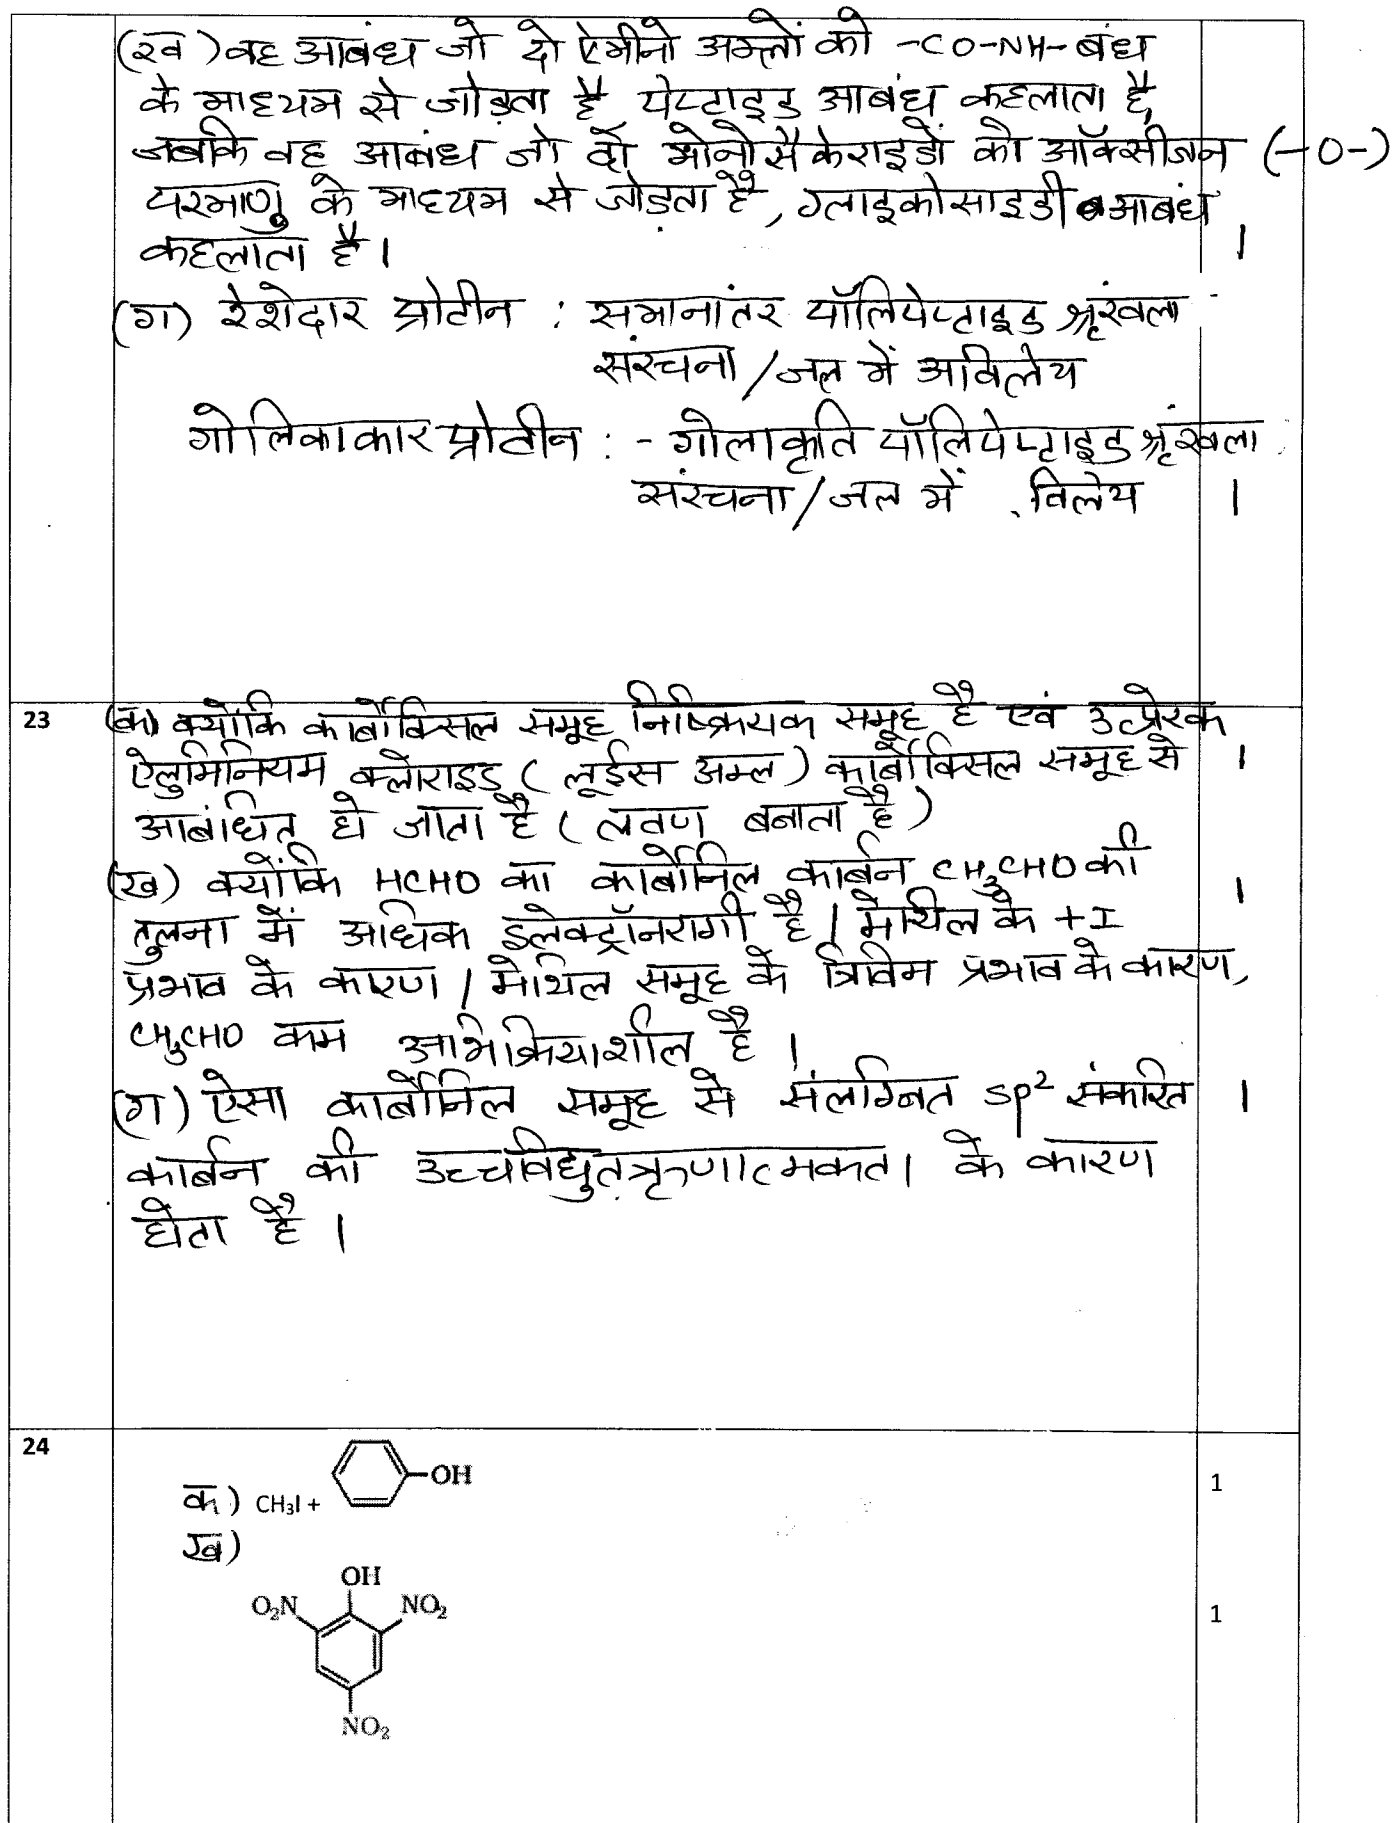 (ख) वह आबंध जो दो ऐमीनो अम्लों को -CO-NH- बंध
के माध्यम से जोड़ता है पेप्टाइड आबंध कहलाता है,
जबकि वह आबंध जो दो मोनोसैकेराइडों को ऑक्सीजन (-O-)
परमाणु के माध्यम से जोड़ता है, ग्लाइकोसाइडी आबंध
कहलाता है। 1
(ग) रेशेदार प्रोटीन : समानांतर पॉलिपेप्टाइड श्रृंखला
संरचना / जल में अविलेय
गोलिकाकार प्रोटीन : - गोलाकृति पॉलिपेप्टाइड श्रृंखला
संरचना / जल में विलेय 1
23 (क) क्योंकि कार्बोक्सिल समूह निष्क्रियक समूह है एवं उत्प्रेरक
ऐलुमिनियम क्लोराइड (लूईस अम्ल) कार्बोक्सिल समूह से 1
आबंधित हो जाता है (लवण बनाता है)
(ख) क्योंकि HCHO का कार्बोनिल कार्बन CH₃CHO की 1
तुलना में अधिक इलेक्ट्रॉनरागी है / मेथिल के +I
प्रभाव के कारण / मेथिल समूह के त्रिविम प्रभाव के कारण,
CH₃CHO कम अभिक्रियाशील है।
(ग) ऐसा कार्बोनिल समूह से संलग्नित sp² संकरित 1
कार्बन की उच्चविद्युतऋणात्मकता के कारण
होता है।
24
क) CH₃I + OH 1
ख)
OH
O₂N NO₂ 1
NO₂